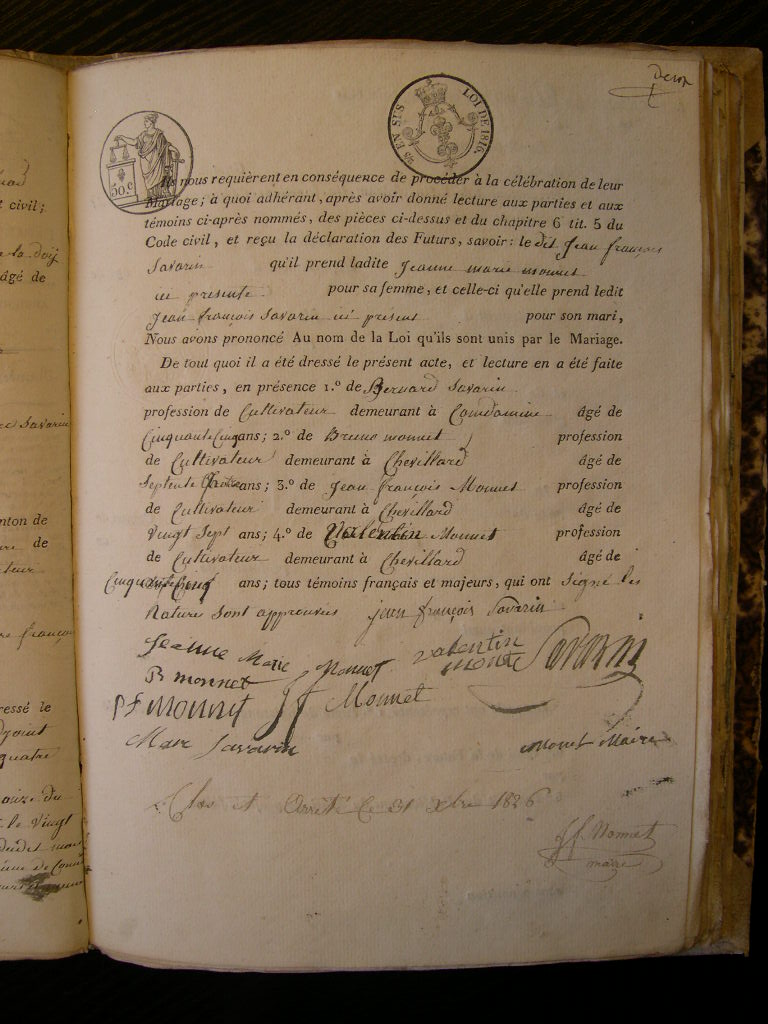 Deux
25 EN SUS LOI DE 1816.
50.c
Ils nous requièrent en conséquence de procéder à la célébration de leur
Mariage; à quoi adhérant, après avoir donné lecture aux parties et aux
témoins ci-après nommés, des pièces ci-dessus et du chapitre 6 tit. 5 du
Code civil, et reçu la déclaration des Futurs, savoir: le dit Jean françois
Savarin qu'il prend ladite Jeanne marie monnet
ici presente pour sa femme, et celle-ci qu'elle prend ledit
Jean françois Savarin ici present pour son mari,
Nous avons prononcé Au nom de la Loi qu'ils sont unis par le Mariage.
De tout quoi il a été dressé le présent acte, et lecture en a été faite
aux parties, en présence 1.º de Bernard Savarin
profession de Cultivateur demeurant à Condamine âgé de
Cinquante Cinq ans; 2.º de Bruno monnet profession
de Cultivateur demeurant à Chevillard âgé de
Septente ans; 3.º de Jean françois Monnet profession
de Cultivateur demeurant à Chevillard âgé de
Vingt Sept ans; 4.º de Valentin Monnet profession
de Cultivateur demeurant à Chevillard âgé de
Cinquante ans; tous témoins français et majeurs, qui ont Signé les
Rature Sont approuvées jean françois Savarin
Jeanne Marie Monnet valentin monet Savarin
B monnet
Monnet Jf Monnet
Marc Savarin Monet Maire
Clos et Arreté le 31 xbre 1826
Jf Monnet
maire
civil;
âgé de
Savarin
nton de
de
françois
ressé le
adjoint
quatre
le Vingt